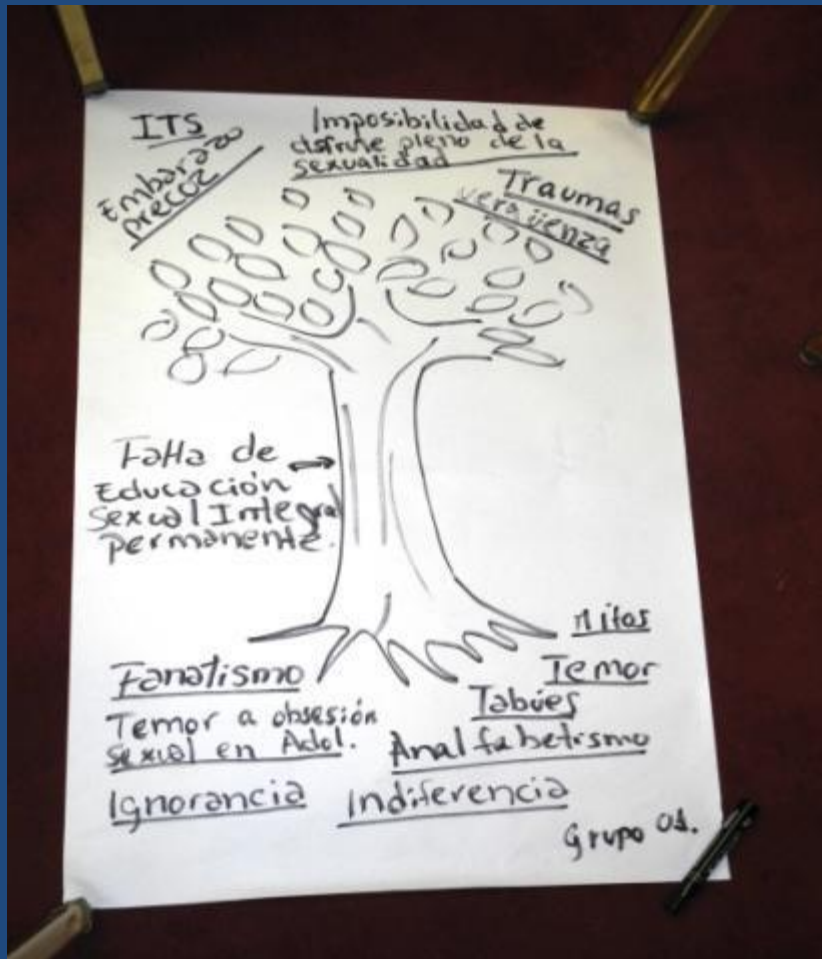 ITS
Embarazo
precoz
Imposibilidad de
disfrute pleno de la
sexualidad
Traumas
vergüenza
Falta de
Educación
Sexual Integral
permanente.
Mitos
Fanatismo
Temor
Tabúes
Temor a obsesión
sexual en Adol.
Analfabetismo
Ignorancia
Indiferencia
Grupo 01.